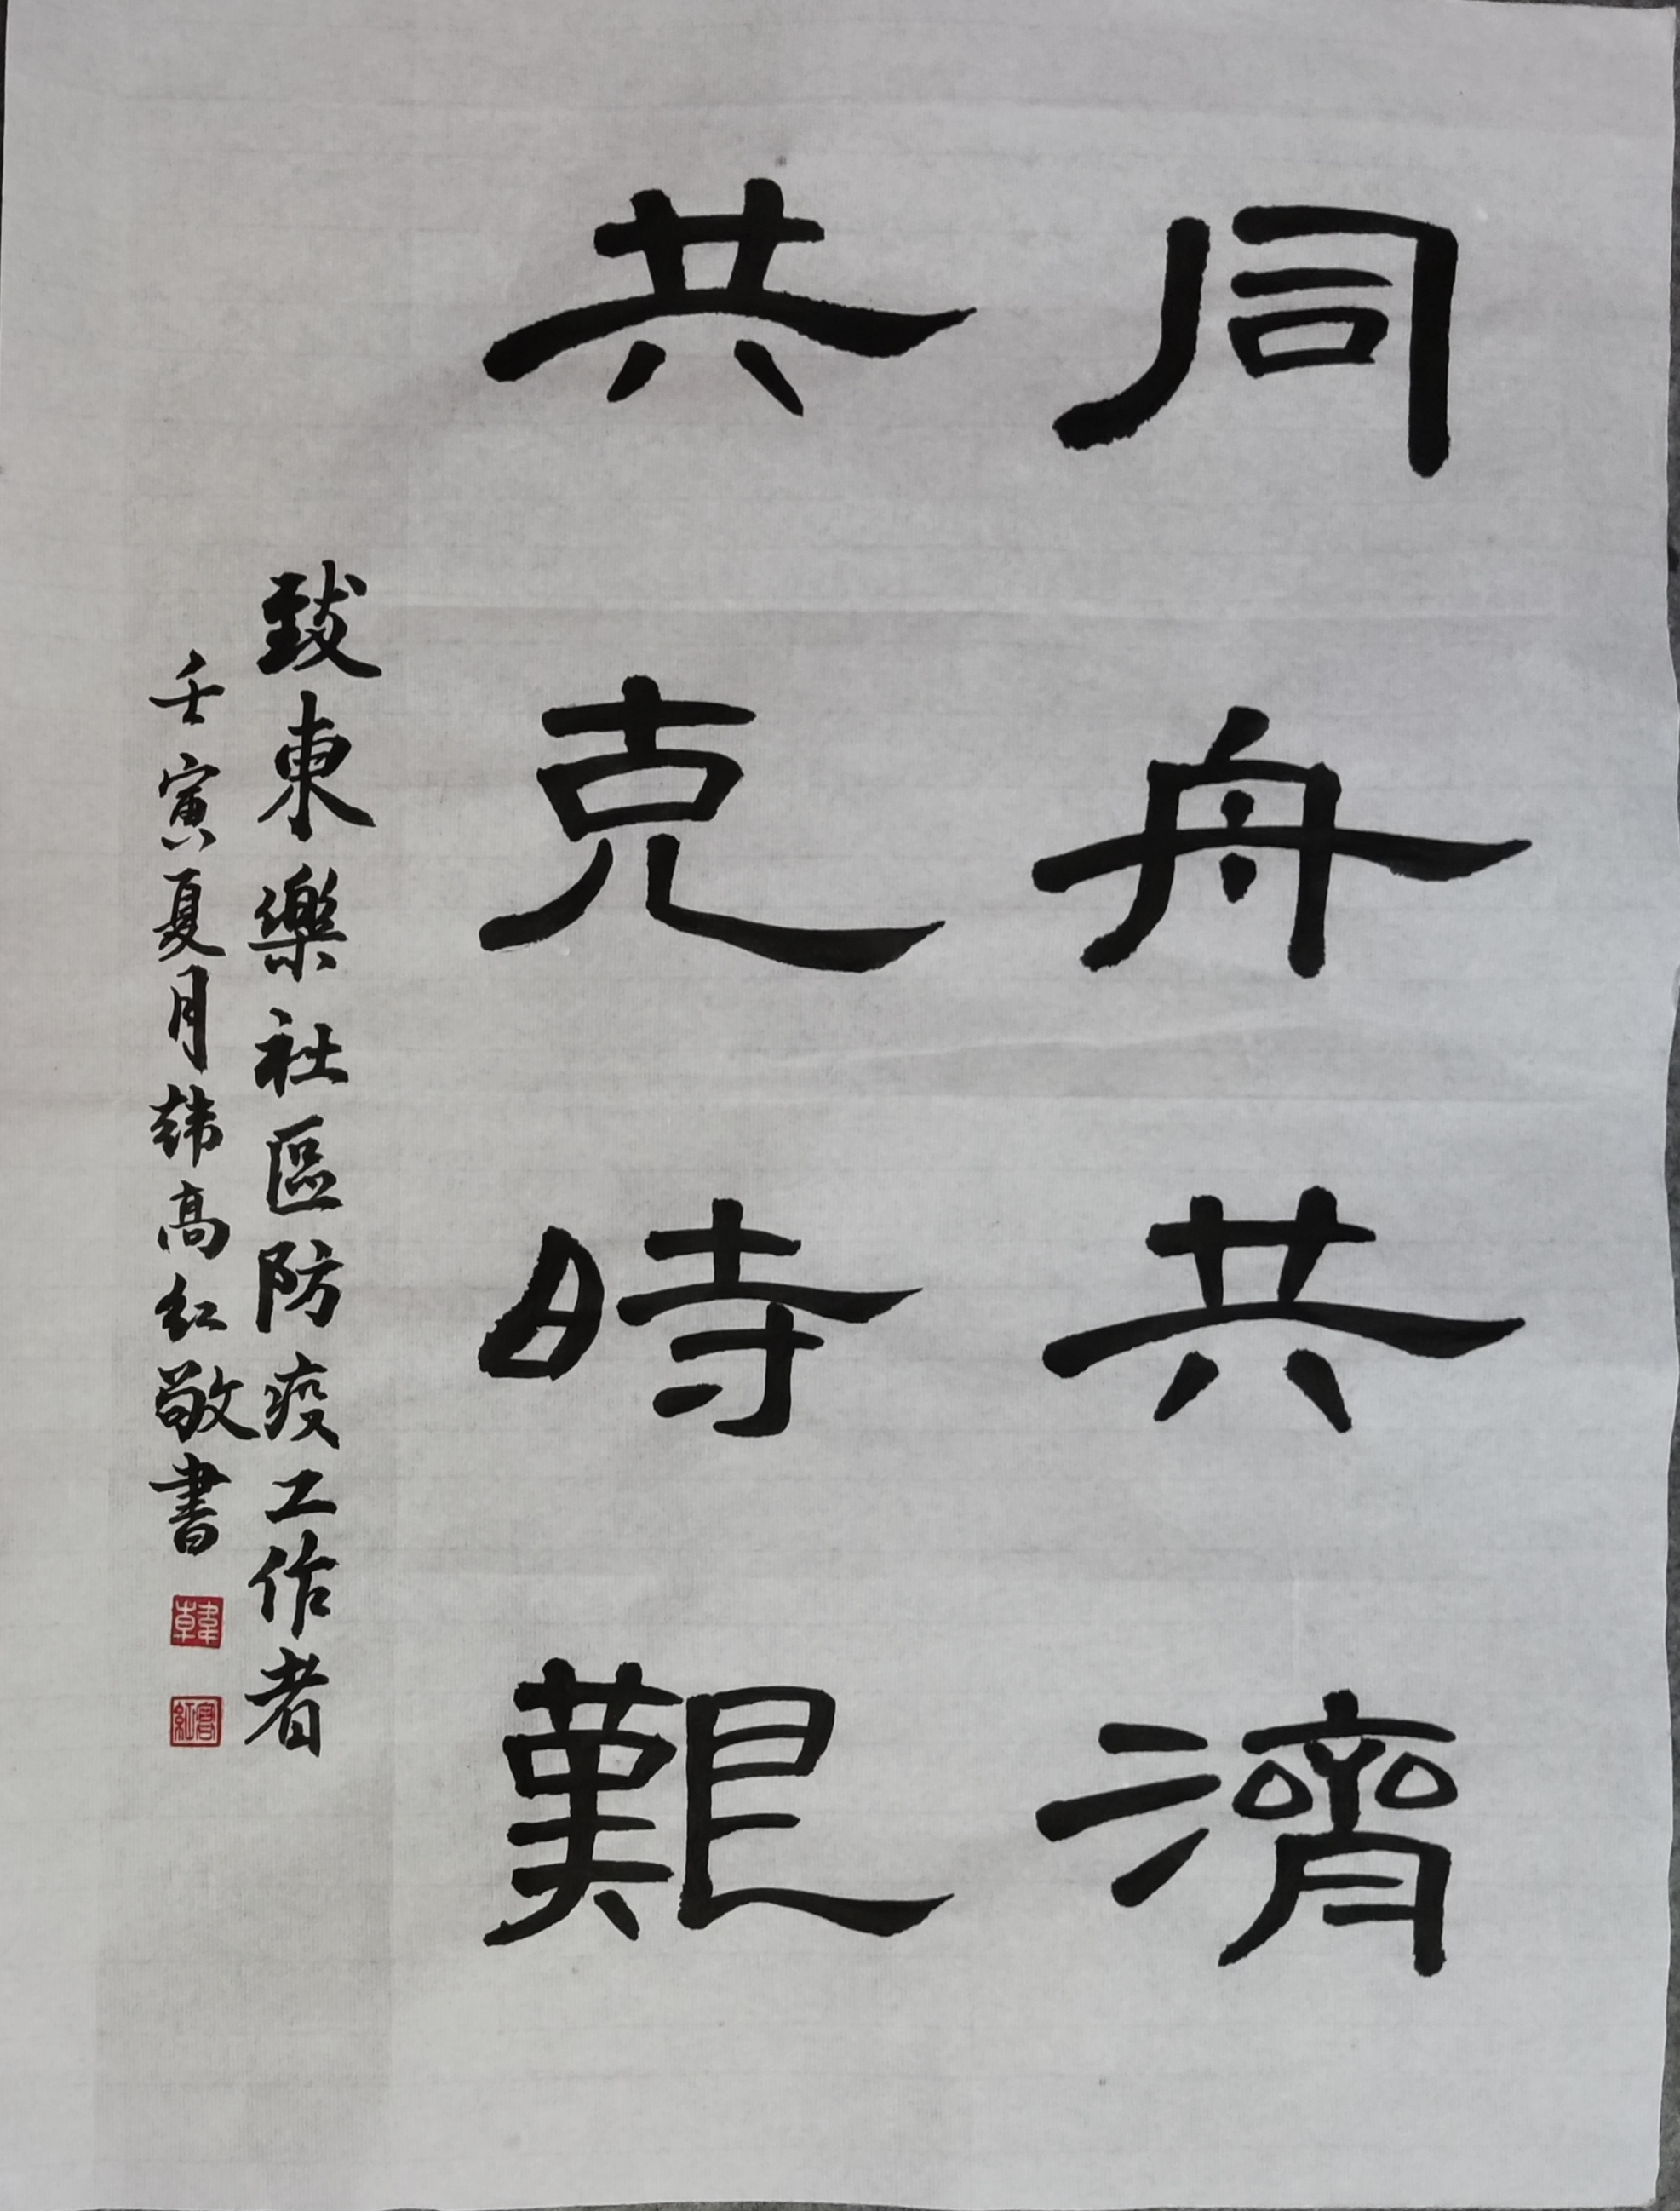 同舟共濟
共克時艱
致東樂社區防疫工作者
壬寅夏月韓高紅敬書
韓
高紅